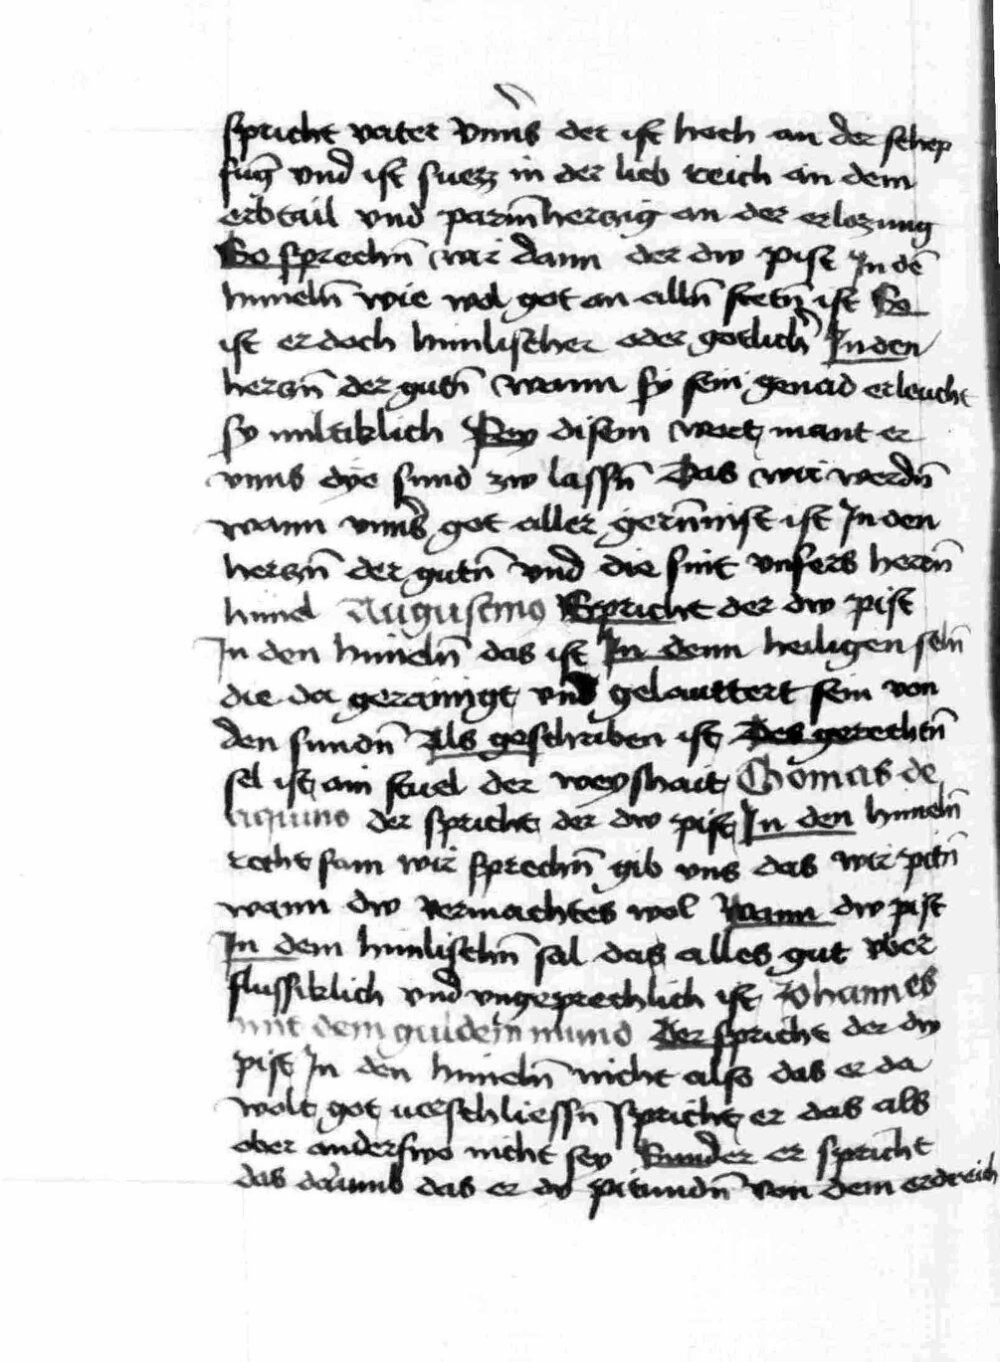 spricht vater vnns der ist hoch an der schep
fuḡ vnd ist suezz in der lieb reich an dem
erbtail vnd parm̄herczig an der erlozung
So sprechn̄ wir dann der dw pist In dē
himeln̄ wie wol got an alln̄ stetn̄ ist So
ist er doch himlischer oder gotlich̄ In den
herczn̄ der gutn̄ wann sy sein genad erleucht
sy miltiklich Bey disem wort mant er
vnns dye sund zw lassn̄ Das wir werdn̄
wann vnns got aller gerūmist ist In den
herczn̄ der gutn̄ vnd die sint vnsers herrn̄
himel Augustinus Spricht der dw pist
In den himeln̄ das ist In denn heiligen seln̄
die da gerainigt vnd gelauttert sein von
den sundn̄ Als geschriben ist Des gerechtn̄
sel ist ain stuel der weyshait Thomas de
aquino der spricht der dw pist In den himeln̄
recht sam wir sprechn̄ gib vns das wir pitn̄
wann dw vermachtes wol Wann dw pist
In dem himlischn̄ sal das alles gut vber
flussiklich vnd vngeprechlich ist Johannes
mit dem guldein mund Der spricht der dw
pist In den himeln̄ nicht also das er da
wolt got verschliessn̄ spricht er das als
ober anderswo nicht sey Sunder er spricht
das darumb das er dy pitundn̄ von dem erdreich